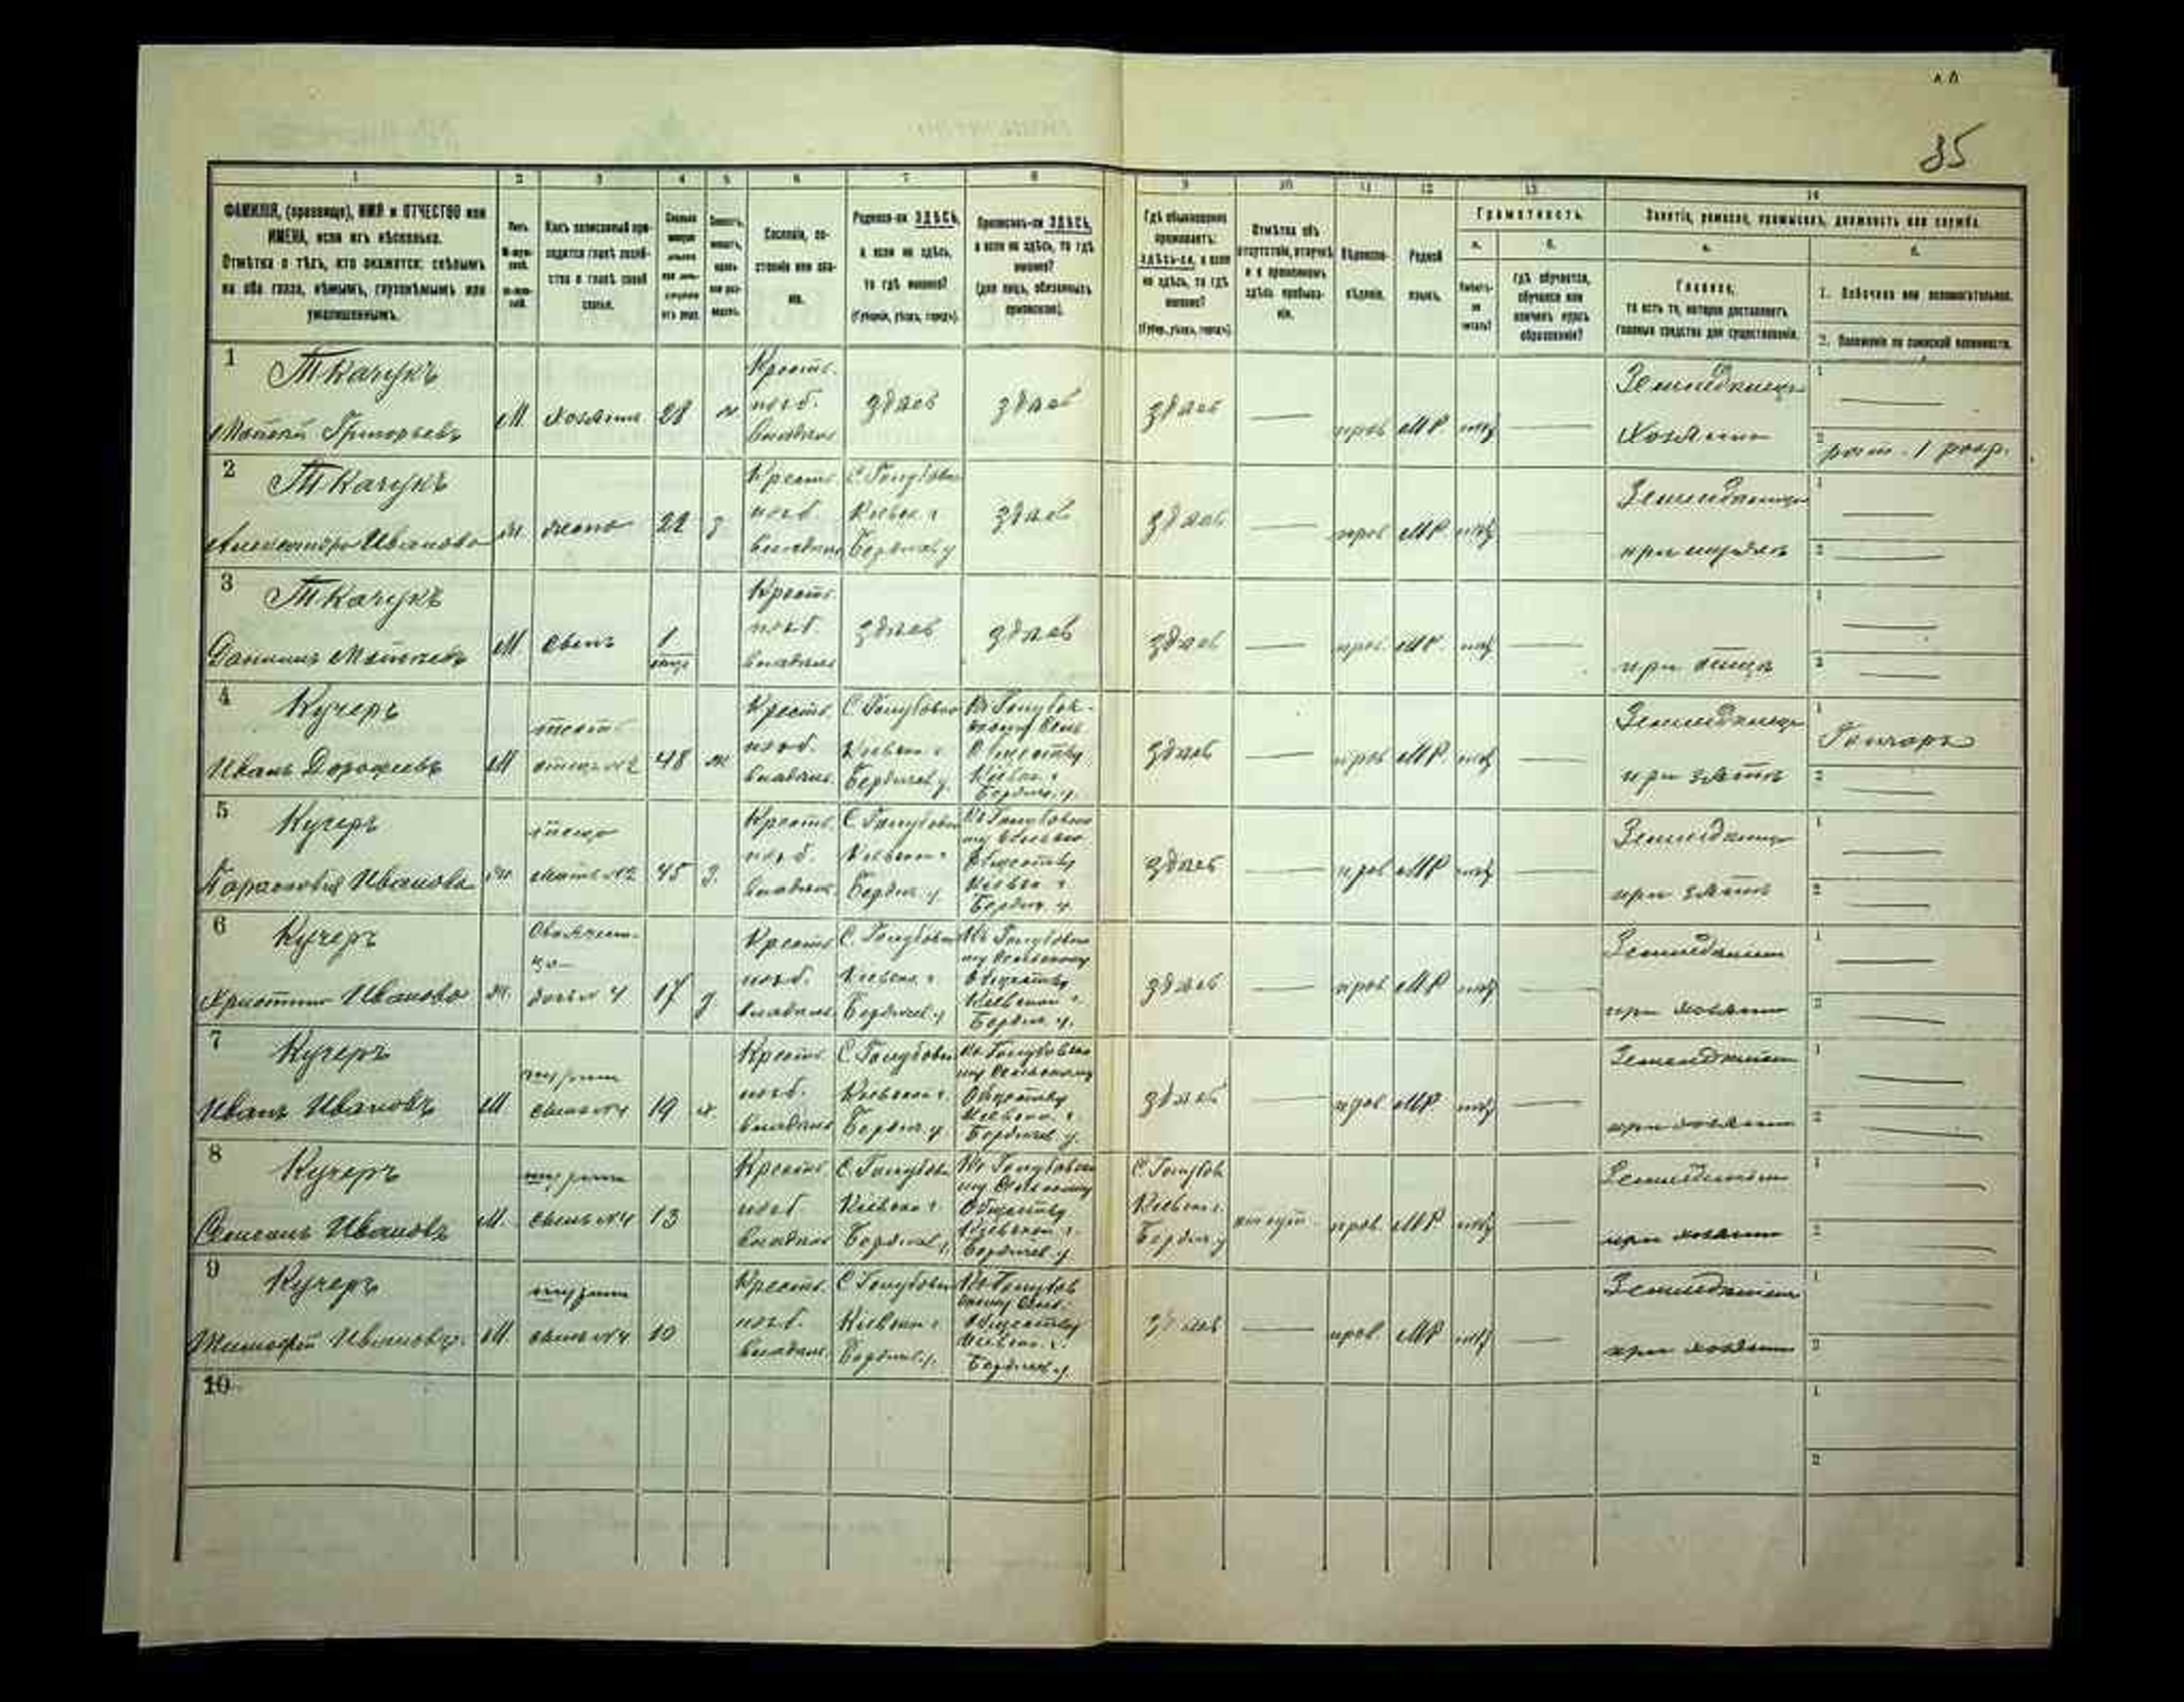 35
1 2 3 4 5 6 7 8 9 10 11 12 13 14
ФАМИЛІЯ, (прозвище), ИМЯ и ОТЧЕСТВО или
ИМЕНА, если ихъ нѣсколько.
Отмѣтка о тѣхъ, кто окажется: слѣпымъ
на оба глаза, нѣмымъ, глухонѣмымъ или
умалишеннымъ.
Полъ.
Какъ записанный при-
ходится главѣ хозяй-
ства и главѣ своей
семьи.
Сословіе, со-
стояніе или зва-
ніе.
Родился-ли ЗДѢСЬ,
а если не здѣсь,
то гдѣ именно?
(Губернія, уѣздъ, городъ).
Приписанъ-ли ЗДѢСЬ,
а если не здѣсь, то гдѣ
именно?
(для лицъ, обязанныхъ
припискою).
Гдѣ обыкновенно
проживаетъ:
ЗДѢСЬ-ли, а если
не здѣсь, то гдѣ
именно?
(Губер., уѣздъ, городъ).
Отмѣтка объ
отсутствіи, отлучкѣ
и о временномъ
здѣсь пребыва-
ніи.
Вѣроиспо-
вѣданіе.
Родной
языкъ.
Грамотность.
а.
Умѣетъ-
ли
читать?
б.
Гдѣ обучается,
обучался или
кончилъ курсъ
образованія?
Занятіе, ремесло, промыселъ, должность или служба.
а.
Главное,
то есть то, которое доставляетъ
главныя средства для существованія.
б.
1. Побочное или вспомогательное.
2. Положеніе по воинской повинности.
1 Ткачукъ
Моисей Григорьевъ М хозяинъ 28 ж Крест. собств. владѣл. здѣсь здѣсь здѣсь — прав МР нѣтъ — Земледѣлецъ хозяинъ
1 —
2 рат. 1 разр.
2 Ткачукъ
Александра Иванова ж жена 22 з Крест. владѣл. С. Голубовка Кіевск. г. Бердичев. у. здѣсь здѣсь — прав МР нѣтъ — Земледѣлецъ при мужѣ
1 —
2 —
3 Ткачукъ
Даніилъ Моисеевъ М сынъ 1 Крест. владѣл. здѣсь здѣсь здѣсь — прав. МР. нѣтъ — при отцѣ
1 —
2 —
4 Кучеръ
Иванъ Дорофеевъ М тесть отецъ №2 48 ж Крест. владѣл. С. Голубовка Кіевск. г. Бердичев. у. Къ Голубов-скому Сел. Обществу Кіевск. г. Бердич. у. здѣсь — прав МР нѣтъ — Земледѣлецъ при зятѣ
1 Гончаръ
2 —
5 Кучеръ
Парасковія Иванова ж. теща мать №2 45 з. Крест. владѣл. С. Голубовка Кіевск. г. Бердич. у. Къ Голубовско-му Сельском. Обществу Кіевск. г. Бердич. у. здѣсь — прав МР нѣтъ — Земледѣлецъ при зятѣ
1 —
2 —
6 Кучеръ
Христина Иванова ж. Своячени-ца дочь № 4 17 д Крест. владѣл. С. Голубовка Кіевск. г. Бердичев. у. Къ Голубовско-му Сельскому Обществу Кіевской г. Бердич. у. здѣсь — прав МР нѣтъ — Земледѣліем при хозяинѣ
1 —
2 —
7 Кучеръ
Иванъ Ивановъ М. шуринъ сынъ №4 19 х. Крест. владѣл. С. Голубовка Кіевской г. Бердич. у. Къ Голубовско-му Сельскому Обществу Кіевской г. Бердичев. у. здѣсь — прав МР нѣтъ — Земледѣліем при хозяинѣ
1 —
2 —
8 Кучеръ
Ивановъ М. шуринъ сынъ №4 13 Крест. владѣл. С. Голубовка Кіевской г. Бердичев. у. Къ Голубовско-му Сельскому Обществу Кіевской г. Бердичев. у. С. Голубов Кіевск. г. Бердич. у отсут. прав. МР нѣтъ — Земледѣліем при хозяинѣ
1 —
2 —
9 Кучеръ
Тимофей Ивановъ. М. шуринъ сынъ №4. 10 Крест. владѣл. С. Голубовка Кіевск. г. Бердичев. у. Къ Голубов-скому Сел. Обществу Кіевск. г. Бердичев. у. здѣсь — прав. МР нѣтъ — Земледѣліем при хозяинѣ
1 —
2 —
10
1
2